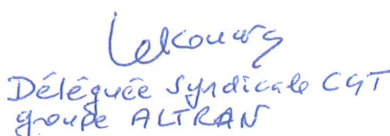 Déléguée Syndicale CGT
groupe ALTRAN